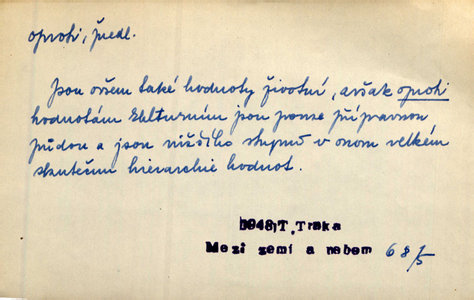 oproti, předl.
Jsou ovšem také hodnoty životní, avšak oproti
hodnotám kulturním jsou pouze přípravnou
půdou a jsou nižšího stupně v onom velkém
skutečném hierarchie hodnot.
1948 T. Trnka
Mezi zemí a nebem 68/5